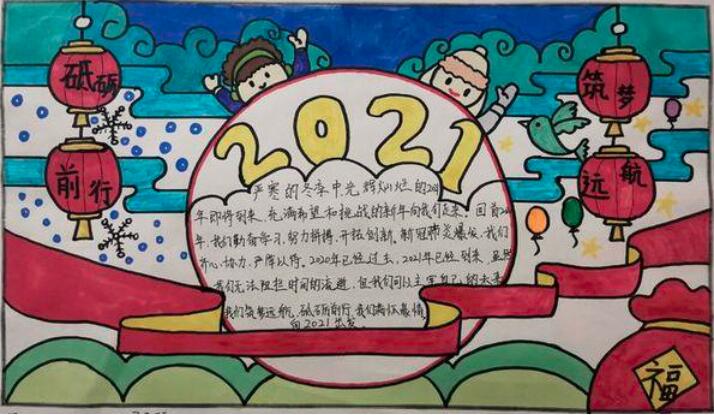 砥砺
前行
筑梦
远航
2021
严寒的冬季中光辉灿烂的2021
年即将到来,充满希望和挑战的新年向我们走来。回首20
年,我们勤奋学习,努力拼搏,开拓创新。新冠肺炎爆发,我们
齐心协力,严阵以待。2020年已经过去,2021年已经到来,虽然
我们无法阻拦时间的流逝,但我们可以主宰自己的未来
我们筑梦远航,砥砺前行,我们满怀豪情
向2021出发
福